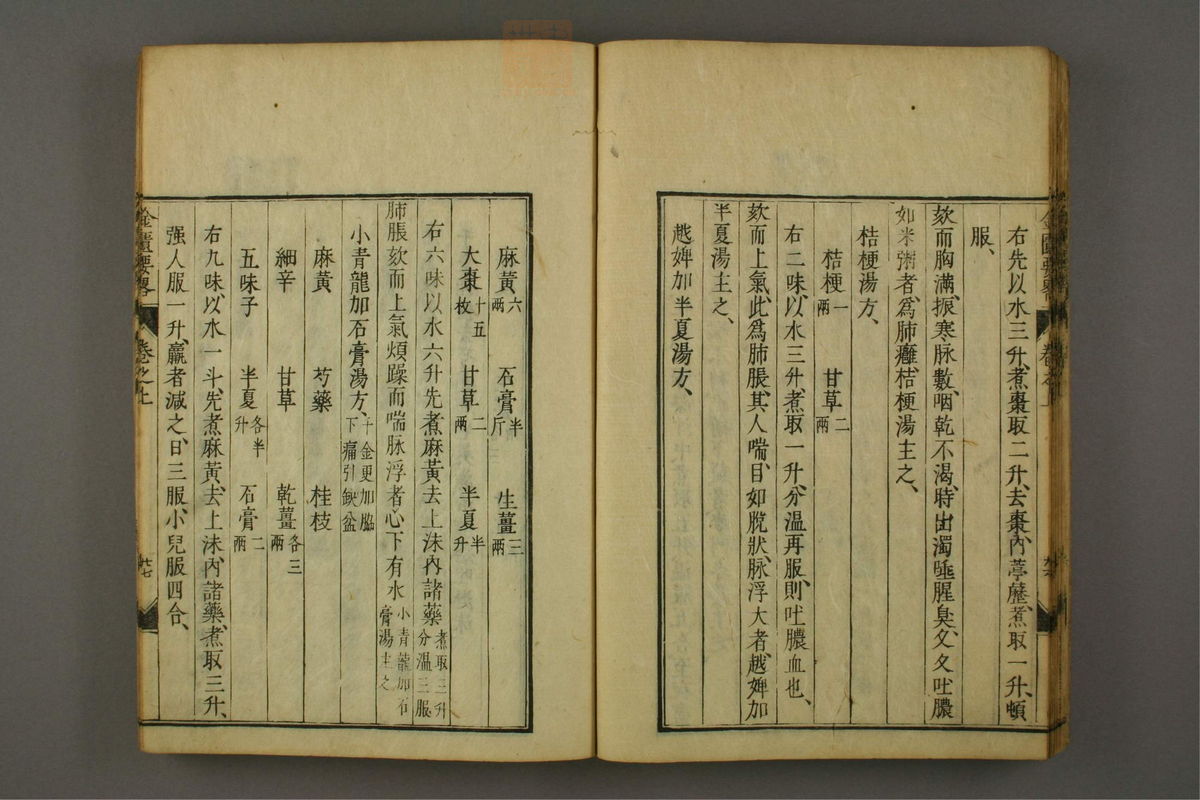 右先以水三升、煮棗取二升、去棗、內葶藶、煮取一升、頓
服、
欬而胸滿、振寒脉數、咽乾不渴、時出濁唾腥臭、久久吐膿
如米粥者、為肺癰、桔梗湯主之、
桔梗湯方、
桔梗一兩 甘草二兩
右二味、以水三升、煮取一升、分溫再服、則吐膿血也、
欬而上氣、此為肺脹、其人喘、目如脫狀、脉浮大者、越婢加
半夏湯主之、
越婢加半夏湯方、
金匱要畧 卷之上
麻黃六兩 石膏半斤 生薑三兩
大棗十五枚 甘草二兩 半夏半升
右六味以水六升先煮麻黃去上沫內諸藥煮取三升分溫三服
肺脹欬而上氣煩躁而喘脉浮者心下有水小青龍加石膏湯主之
小青龍加石膏湯方、千金更加脇下痛引缺盆
麻黃 芍藥 桂枝
細辛 甘草 乾薑各三兩
五味子 半夏各半升 石膏二兩
右九味、以水一斗、先煮麻黃、去上沫、內諸藥、煮取三升、
强人服一升、羸者減之、日三服、小兒服四合、
金匱要畧 卷之上 廿七